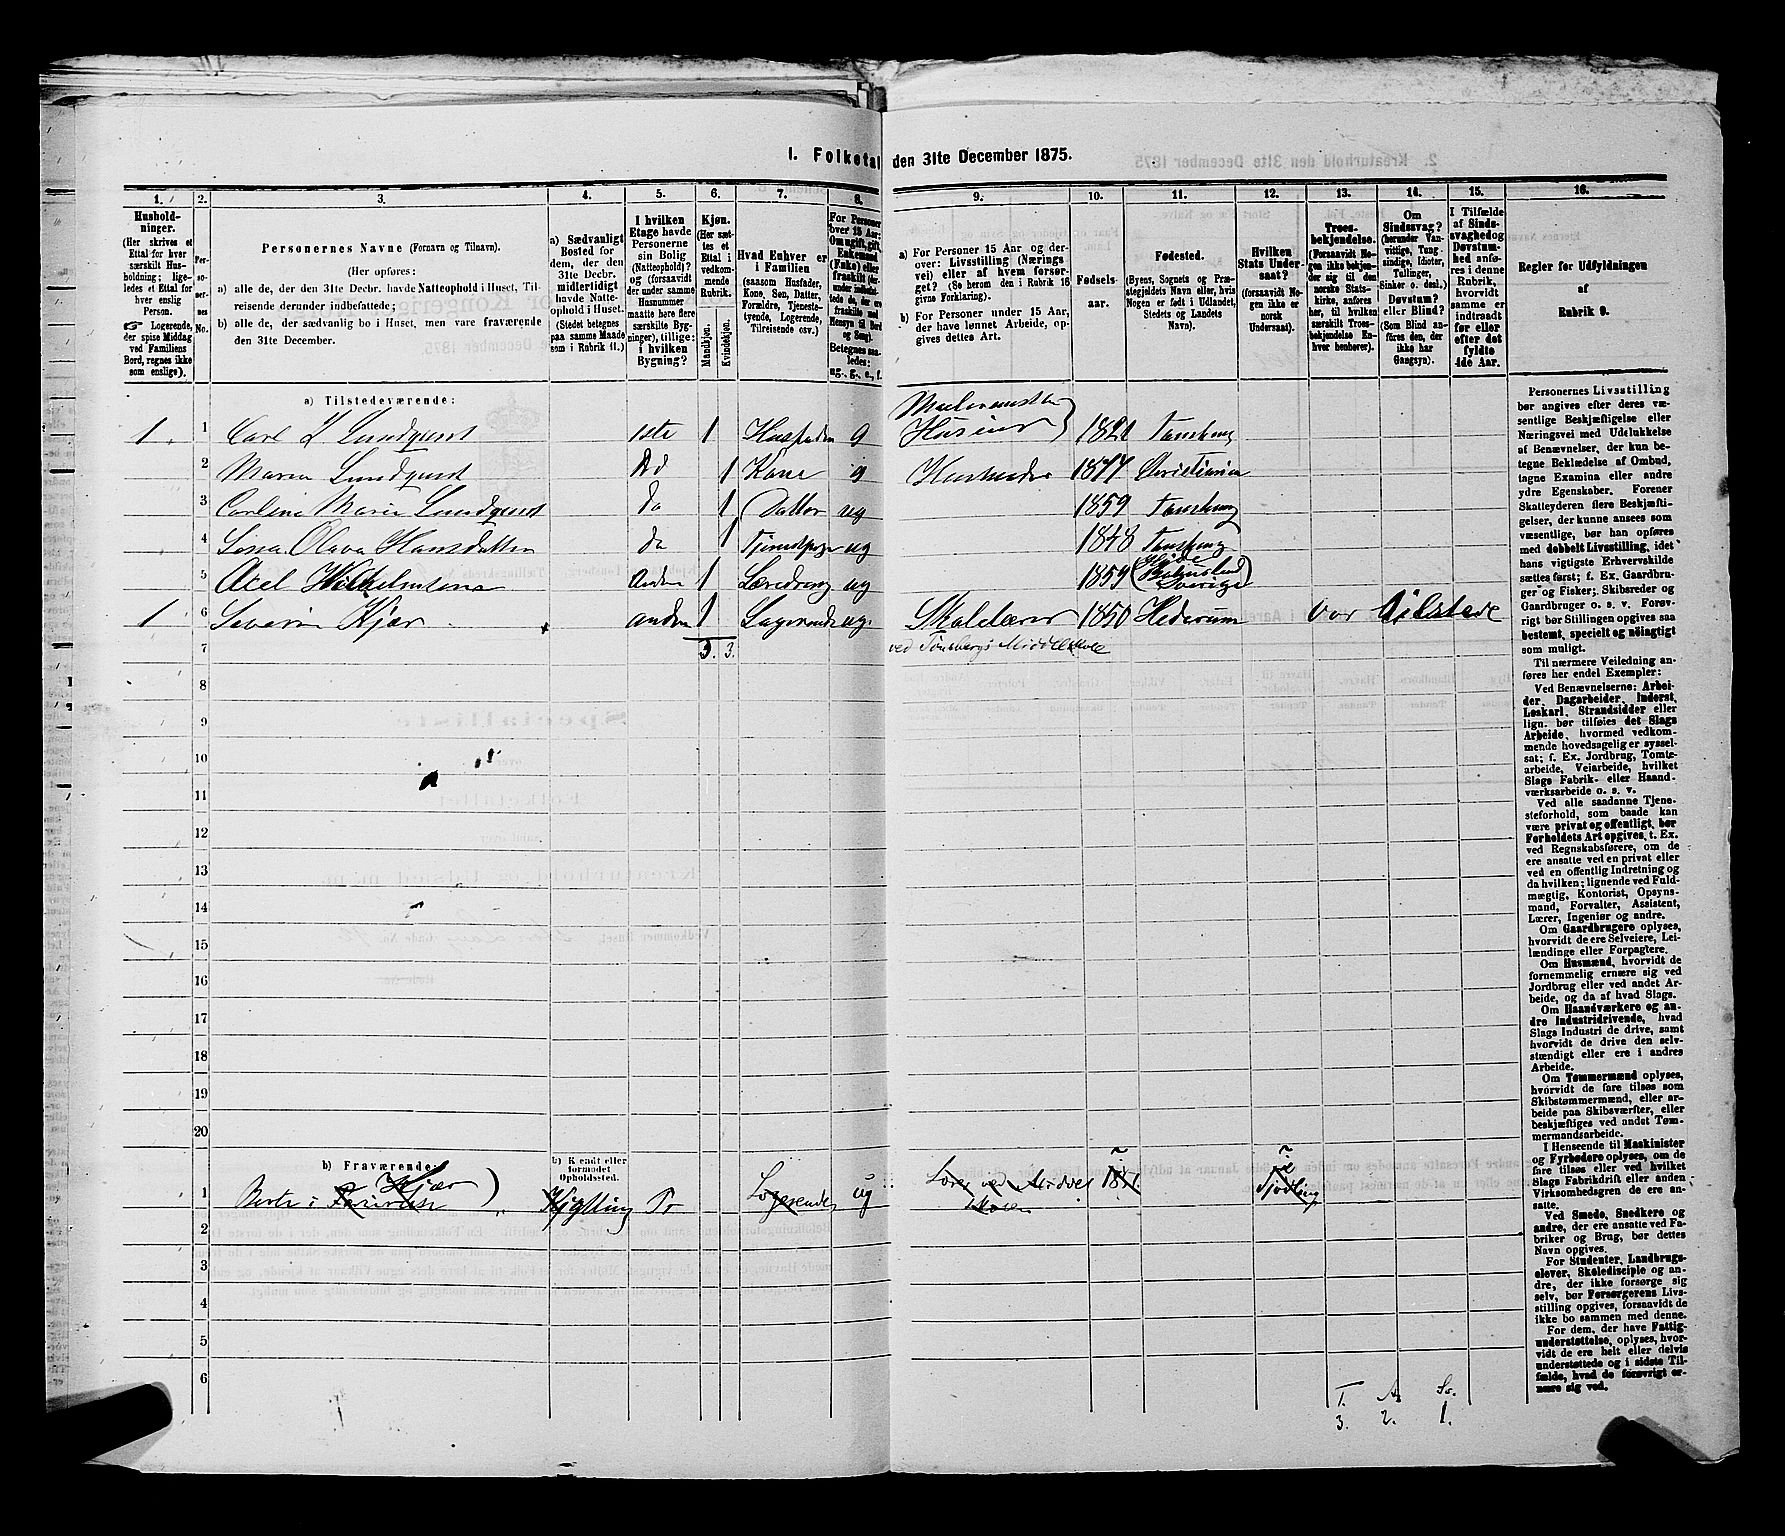 1. Folketal den 31te December 1875.
1. 2. 3. 4. 5. 6. 7. 8. 9. 10. 11. 12. 13. 14. 15. 16.
Hushold-
ninger.
(Her skrives et
Ettal for hver
særskilt Hus-
holdning; lige-
ledes et Ettal for
hver enslig
Person.
☞ Logerende,
der spise Middag
ved Familiens
Bord, regnes ikke
som enslige).
Per-
so-
ner-
nes
No.
Personernes Navne (Fornavn og Tilnavn).
(Her opføres:
a) alle de, der den 31te Decbr. havde Natteophold i Huset, Til-
reisende derunder indbefattede;
b) alle de, der sædvanlig bo i Huset, men vare fraværende
den 31te December.
a) Sædvanligt
Bosted for
dem, der den
31te Decbr.
midlertidigt
havde Natte-
ophold i Huset.
(Stedet betegnes
paa samme Maade
som i Rubrik 11.)
I hvilken
Etage havde
Personerne
sin Bolig
(Natteophold)?
og (forsaavidt
der under samme
Husnummer
maatte høre flere
særskilte Byg-
ninger), tillige:
i hvilken
Bygning?
Kjøn.
(Her sæt-
tes et
Ettal i
vedkom-
mende
Rubrik.
Mandkjøn.
Kvindekjøn.
Hvad Enhver er
i Familien
(saasom Husfader,
Kone, Søn, Datter,
Forældre, Tjeneste-
tyende, Logerende,
Tilreisende osv.)
For Personer
over 15 Aar:
Om ugift, gift,
Enkemand
(Enke) eller
fraskilt
Betegnes saa-
ledes:
ug., g., e., f.
a) For Personer 15 Aar og der-
over: Livsstilling (Nærings
vei) eller af hvem forsør-
get? (Se herom den i Rubrik 16
givne Forklaring).
b) For Personer under 15 Aar,
der have lønnet Arbeide, op-
gives dettes Art.
Fødsels-
aar.
Fødested.
(Byens, Sognets og Præ-
stegjeldets Navn eller, hvis
Nogen er født i Udlandet,
Stedets og Landets
Navn).
Hvilken
Stats Under-
saat?
(forsaavidt No-
gen ikke er
norsk
Undersaat).
Troes-
bekjendelse.
(Forsaavidt No-
gen ikke bekjen-
der sig til den
norske Stats-
kirke, anføres
her, til hvilken
særskilt Troes-
bekjendelse En-
hver henhører).
Om
Sindssvag?
(herunder Van-
vittige, Tung-
sindige, Idioter
Tullinger,
Sinker o. desl.)
Døvstum?
eller Blind?
(Som Blind an-
føres den, der
ikke har
Gangsyn).
I Tilfælde
af Sinds-
svaghed og
Døvstum-
hed anfø-
res i denne
Rubrik,
hvorvidt
samme er
indtraadt
før eller
efter det
fyldte
4de Aar.
Regler for Udfyldningen
af
Rubrik 9.
a) Tilstedeværende:
1 1 Carl L. Lundquist 1ste 1 Husfader g 1821 Tønsberg
2 Maren Lundquist Do 1 Kone g Christiania
3 Carline Marie Lundquist do 1 Datter ug 1859 Tønsberg
4 Olava Hansdatter do 1 ug 1848 Tønsberg
5 Axel Wilhelmsen Anden 1 Læredreng ug 1859 Sverige
1 6 Severin Kjær anden 1 Logerende ug. Skolelærer 1850 Hederum
7 3. 3. ved Tønsbergs Middelskole
8
9
10
11
12
13
14
15
16
17
18
19
20
b) Fraværende:
b) Kjendt eller
formodet
Opholdssted.
1 Kjær Logerende ug
2
3
4
5
6
T. A. Sv.
3. 2. 1.
Personernes Livsstilling
bør angives efter deres væ-
sentlige Beskjæftigelse eller
Næringsvei med Udelukkelse
af Benævnelser, der kun be-
tegne Beklædelse af Ombud,
tagne Examina eller andre
ydre Egenskaber. Forener
Skatteyderen flere Beskjæfti-
gelser, der kunne ansees som
væsentlige, bør han opføres
med dobbelt Livsstilling, idet
hans vigtigste Erhvervskilde
sættes først; f. Ex. Gaardbru-
ger og Fisker; Skibsreder og
Gaardbruger o. s. v. Forøv-
rigt bør Stillingen opgives saa
bestemt, specielt og nøiagtigt
som muligt.
Til nærmere Veiledning an-
føres her endel Exempler:
Ved Benævnelserne: Arbei-
der, Dagarbeider, Inderst,
Løskarl, Strandsidder eller
lign. bør tilføies det Slags
Arbeide, hvormed vedkom-
mende hovedsagelig er syssel-
sat; f. Ex. Jordbrug, Tomte-
arbeide, Veiarbeide, hvilket
Slags Fabrik- eller Haand-
værksarbeide o. s. v.
Ved alle saadanne Tjene-
steforhold, som baade kan
være privat og offentligt, bør
Forholdets Art opgives, t. Ex.
ved Regnskabsførere, om de
ere ansatte ved en privat eller
ved en offentlig Indretning og
da hvilken; lignende ved Fuld-
mægtig, Kontorist, Opsyns-
mand, Forvalter, Assistent,
Lærer, Ingeniør og andre.
Om Gaardbrugere oplyses,
hvorvidt de ere Selveiere, Lei-
lændinge eller Forpagtere.
Om Husmænd, hvorvidt de
fornemmelig ernære sig ved
Jordbrug eller ved andet Ar-
beide, og da af hvad Slags.
Om Haandværkere og an-
dre Industridrivende, hvad
Slags Industri de drive, samt
hvorvidt de drive den selv-
stændigt eller ere i andres
Arbeide.
Om Tømmermænd oplyses,
hvorvidt de fare tilsøs som
Skibstømmermænd, eller ar-
beide paa Skibsværfter, eller
beskjæftiges ved andet Tøm-
mermandsarbeide.
I Henseende til Maskinister
og Fyrbødere oplyses, om de
fare tilsøs eller ved hvilket
Slags Fabrikdrift eller anden
Virksomhedsgren de ere an-
satte.
Ved Smede, Snedkere og
andre, der ere ansatte ved Fa-
briker og Brug, bør dettes
Navn opgives.
For Studenter, Landbrugs-
elever, Skoledisciple og an-
dre, der ikke forsørge sig
selv, bør Forsørgerens Livs-
stilling opgives, forsaavidt de
ikke bo sammen med denne.
For dem, der have Fattig-
understøttelse, oplyses, hvor-
vidt de ere helt eller delvis
understøttede og i sidste Til-
fælde, hvad de forøvrigt er-
nære sig ved.